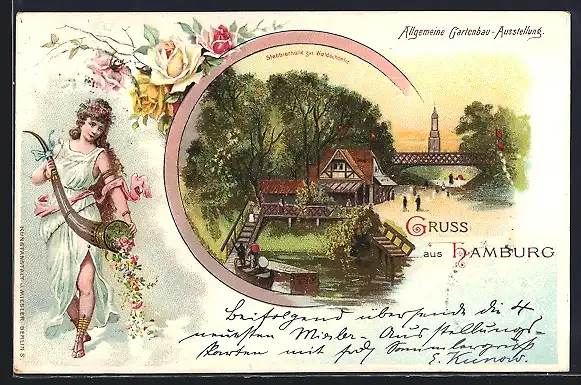 Allgemeine Gartenbau-Ausstellung.
Stehbierhalle zur Waldschenke
GRUSS
aus HAMBURG
KUNSTANSTALT J. MIESLER, BERLIN S.
Beifolgend übersende die 4
neuesten Miesler-Ausstellungs-
karten mit Sammlergruß
E. Kunow.